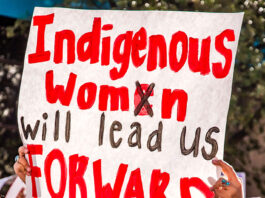 Indigenous
Womxn
will lead us
FORWARD